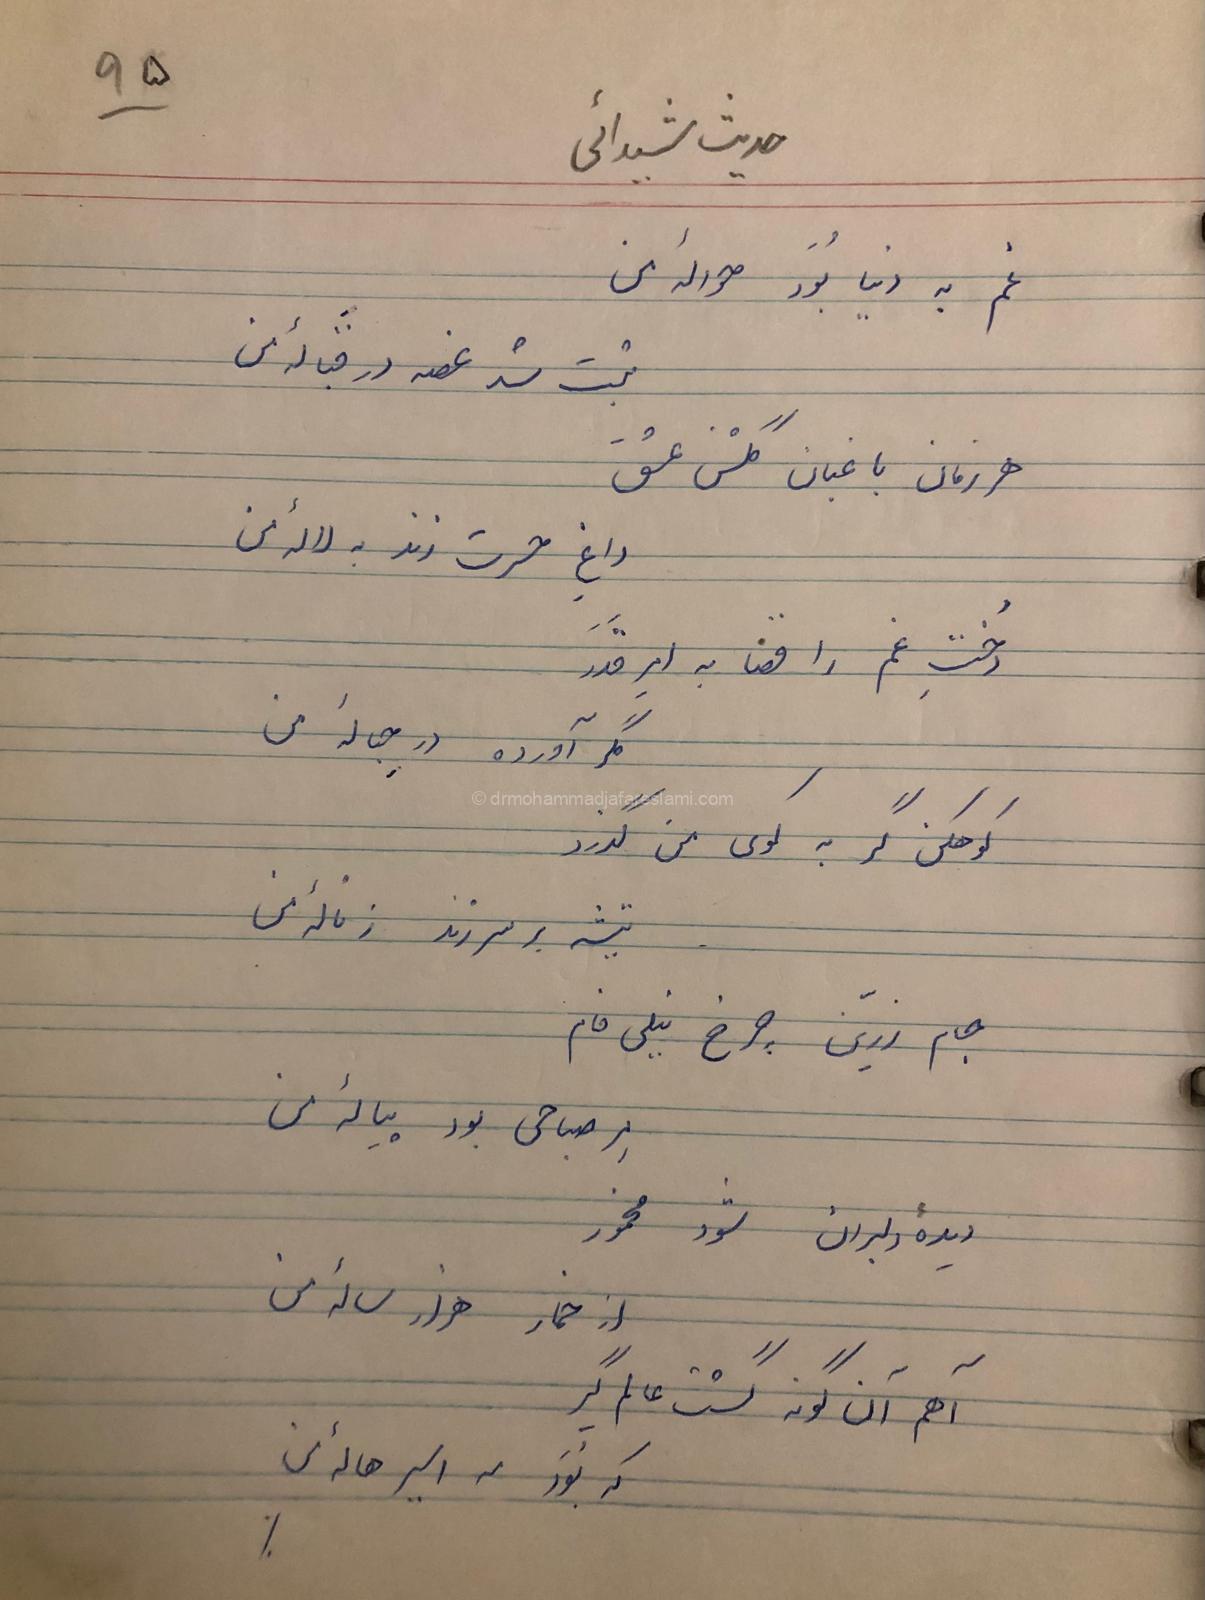 ۹۵
حدیث شیدائی
غم به دنیا بُوَد حوالهٔ من
ثبت شد غصه در قبالهٔ من
هر زمان باغبان گلشن عشق
داغِ حسرت زند به لالهٔ من
دُختِ غم را قضا به امرِ قَدَر
گر آورده در حبالهٔ من
کوهکن گر به کوی من گذرد
تیشه بر سر زند ز نالهٔ من
جام زرّین چرخ نیلی فام
هر صباحی بود پیالهٔ من
دیدهٔ دلبران شود مخمور
از خمار هزار سالهٔ من
آهم آن گونه گشت عالم گیر
که بُوَد مه اسیر هالهٔ من
© drmohammadjafareslami.com